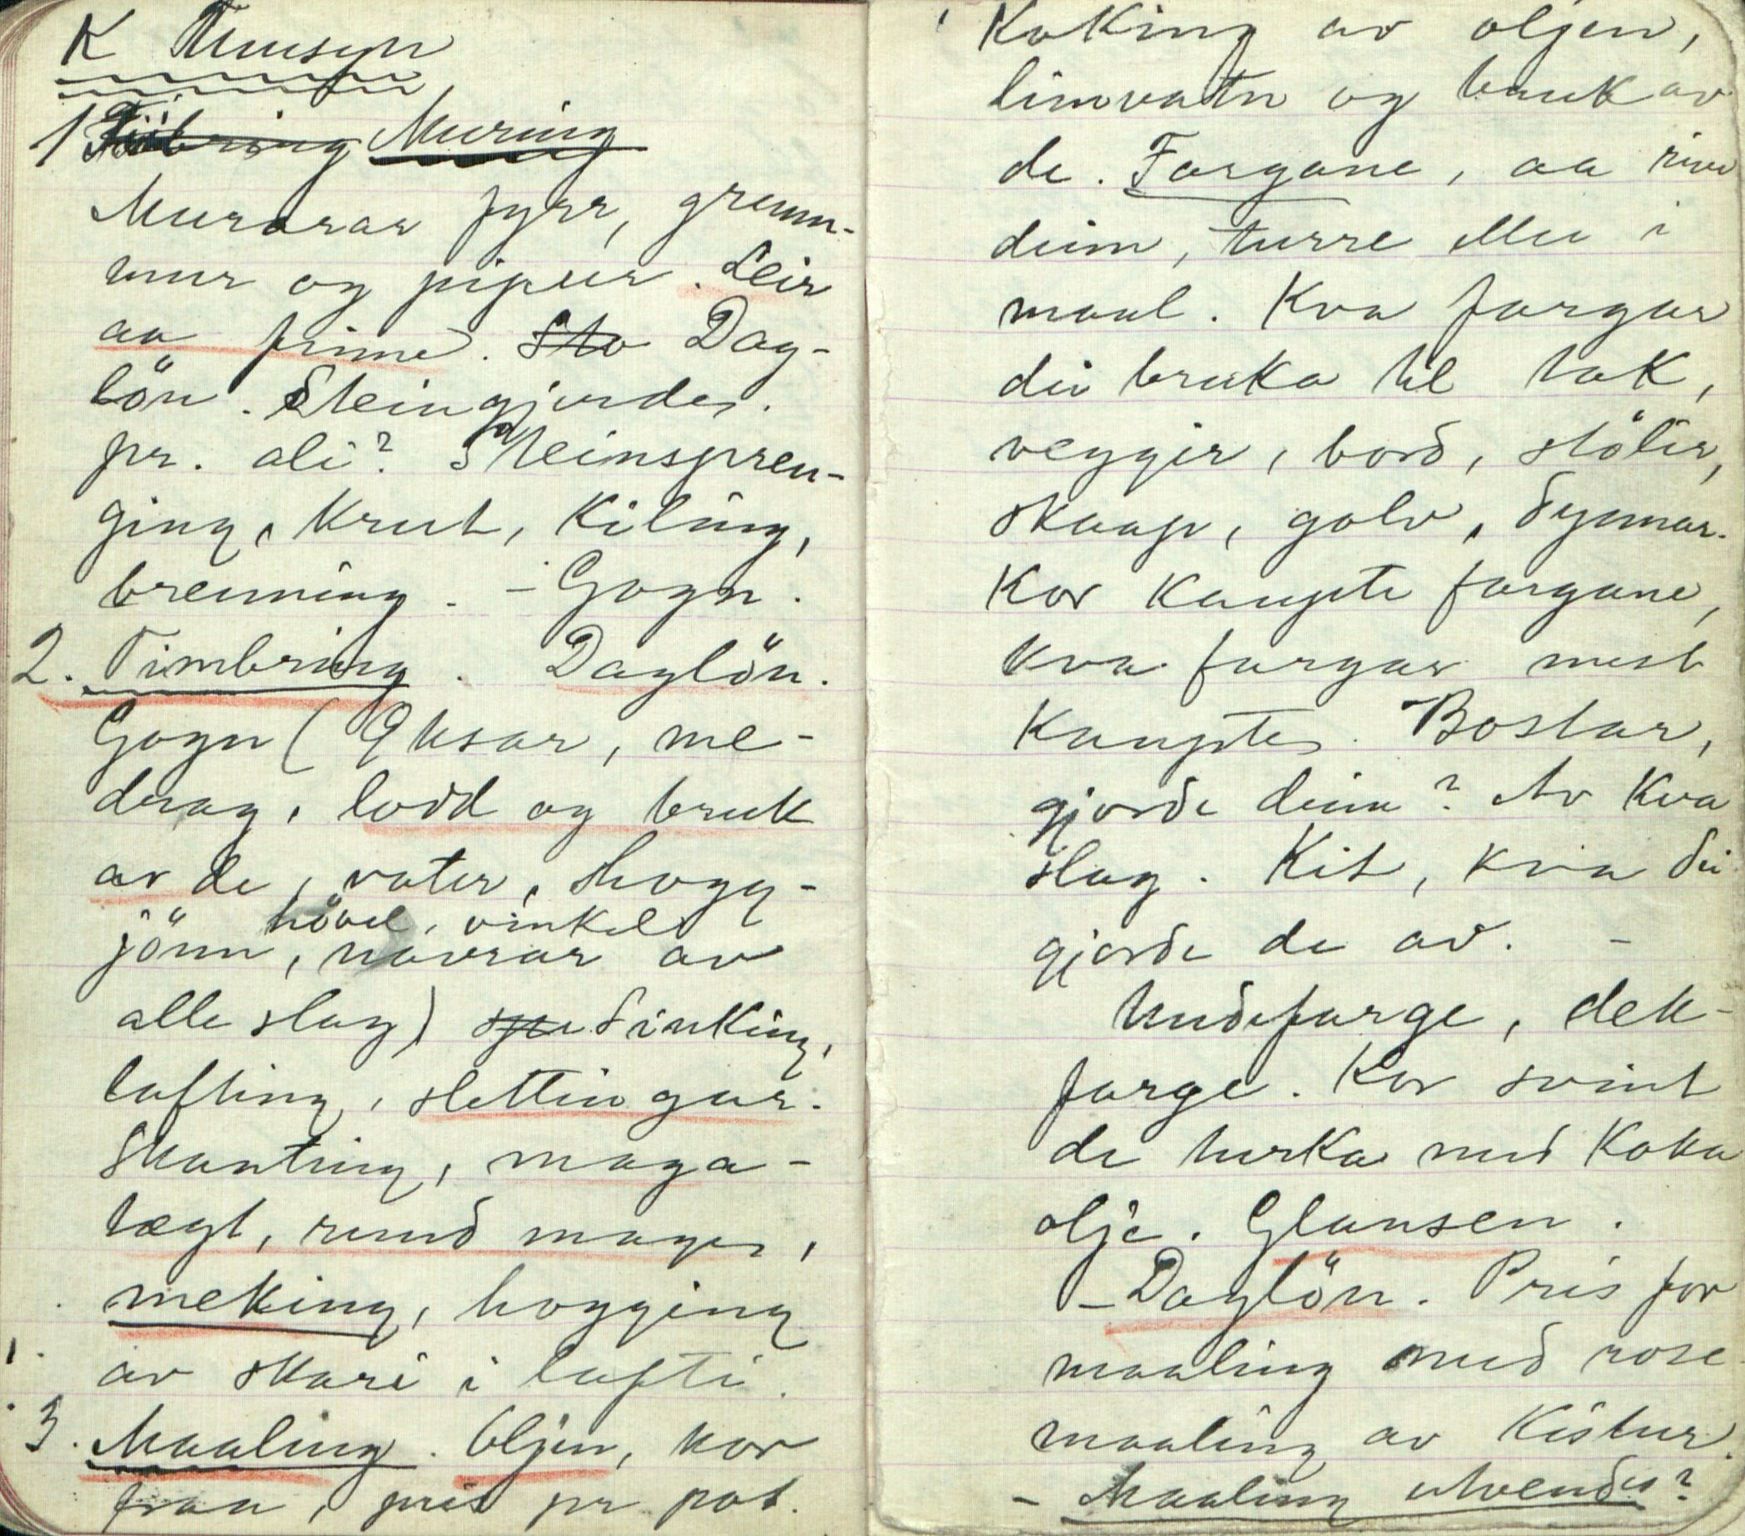 K Tunsyn
1 Timbring Muring
Murarar fyrr, grunn-
mur og pipur. Leir
aa finne. Sto Dag-
lön. Steingjerder.
pr. ali? Steinspren-
ging, Krut, Kiling,
brenning. - Gogn.
2. Timbring. Daglön.
Gogn (Öksar, me-
drag, lodd og bruk
av de, vater, hogg-
hövel, vinkel
jönn, navrar av
alle slag) Sinking,
lafting, slettingar.
Skanting, maga-
tægt, rund mager,
meking, hogging
av skare i lafti.
3. Maaling. Oljen, kor
fraa, pris pr pot.
Koking av oljen,
limvatn og bruk av
de. Fargane, aa rive
deim, turre eller i
maal. Kva fargar
dei bruka til tak,
veggir, bord, stölir,
skaap, golv,
Kor kaupte fargane,
Kva fargar mest
kauptes. Bostar,
gjorde deim? Av Kva
slag. Kit, kva dei
gjorde de av. -
Undefarge, dek-
farge. Kor svint
de turka med Koka
olje. Glansen.
- Daglön. Pris for
maaling med rose-
maaling av Kistur.
- Maaling utvendes?